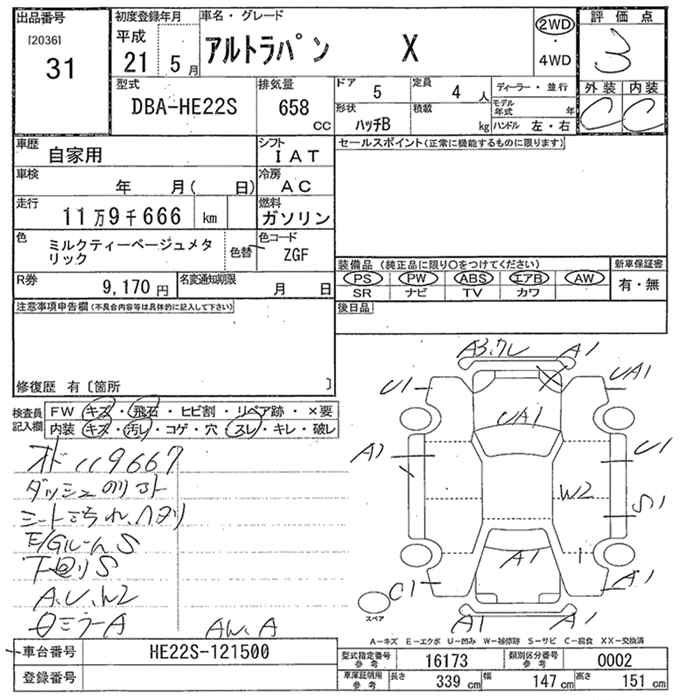 出品番号 初度登録年月 車名・グレード 評価点
[2036] 平成 2WD
31 21 5月 アルトラパン X ・ 3
4WD
型式 排気量 ドア 5 定員 4人 ディーラー・並行 外装 内装
DBA-HE22S 658 モデル年式 年 C C
cc 形状 ハッチB 積載 kg ハンドル 左・右
車歴 自家用 シフト IAT セールスポイント(正常に機能するものに限ります)
車検 年 月( 日) 冷房 AC
走行 11万9千666 km 燃料 ガソリン
色 ミルクティーベージュメタリック 色替 色コード ZGF
装備品(純正品に限り○をつけてください) 新車保証書
R券 9,170円 名変通知期限 月 日 PS PW ABS エアB AW 有・無
SR ナビ TV カワ
注意事項申告欄(不具合内容等は具体的に記入して下さい) 後日品
修復歴 有〔箇所 〕
検査員記入欄 FW キズ・飛石・ヒビ割・リペア跡・×要
内装 キズ・汚レ・コゲ・穴・スレ・キレ・破レ
オド119667
ダッシュのリアト
シートこすれ、ヘタリ
E/GルームS
下回りS
A.U.W2
AW.A
A3.ワレ A1
U1 UA1
UA1
A1 U1
W2 S1
A1
C1 A1
スペア A1 A1
A-キズ E-エクボ U-凹み W-補修跡 S-サビ C-腐食 XX-交換済
車台番号 HE22S-121500 型式指定番号 参考 16173 類別区分番号 参考 0002
登録番号 車庫証明用 参考 長さ 339 cm 幅 147 cm 高さ 151 cm